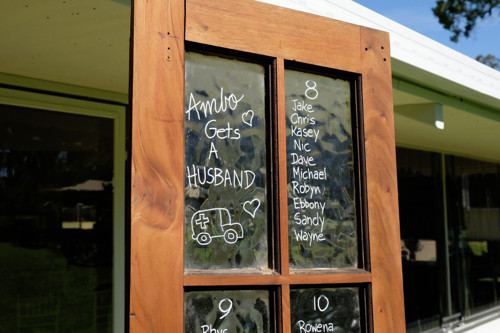 Ambo
Gets
A
HUSBAND
8
Jake
Chris
Kasey
Nic
Dave
Michael
Robyn
Ebbony
Sandy
Wayne
9
Rhys
10
Rowena